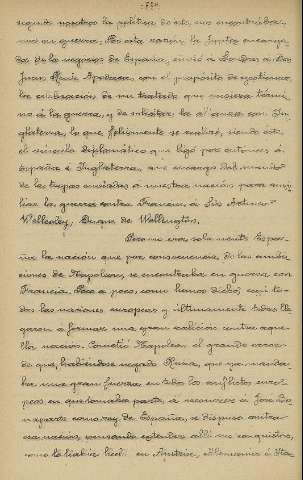 seguida nosotros la política de éste, nos encontrába-
mos en guerra. Por esta razón la Junta encarga-
da de los negocios de España, envió a Londres a Don
Juan Ruiz Apodaca, con el propósito de gestionar
la celebración de un tratado que pusiera térmi-
no a la guerra, y de solicitar la alianza con In-
glaterra, lo que felizmente se realizó, siendo éste
el vínculo diplomático que ligó por entonces a
España e Inglaterra, que encargó del mando
de las tropas enviadas a nuestra nación, para auxi-
liar la guerra contra Francia, a Sir Arturo
Wellesley, Duque de Wellington.
Pero no era solamente Espa-
ña la nación que por consecuencia de las ambi-
ciones de Napoleón, se encontraba en guerra con
Francia. Poco a poco, como hemos dicho, casi to-
das las naciones europeas y últimamente todas lle-
garon a formar una gran coalición contra aque-
lla nación. Cometió Napoleón el grande error
de que, habiéndose negado Rusia, que ya manda-
ba una gran fuerza en todos los conflictos euro-
peos en que tomaba parte, a reconocer a José Bo-
naparte como rey de España, se dispuso contra
esa nación, pensando extender allí sus conquistas,
como lo había hecho en Austria, Alemania e Ita-